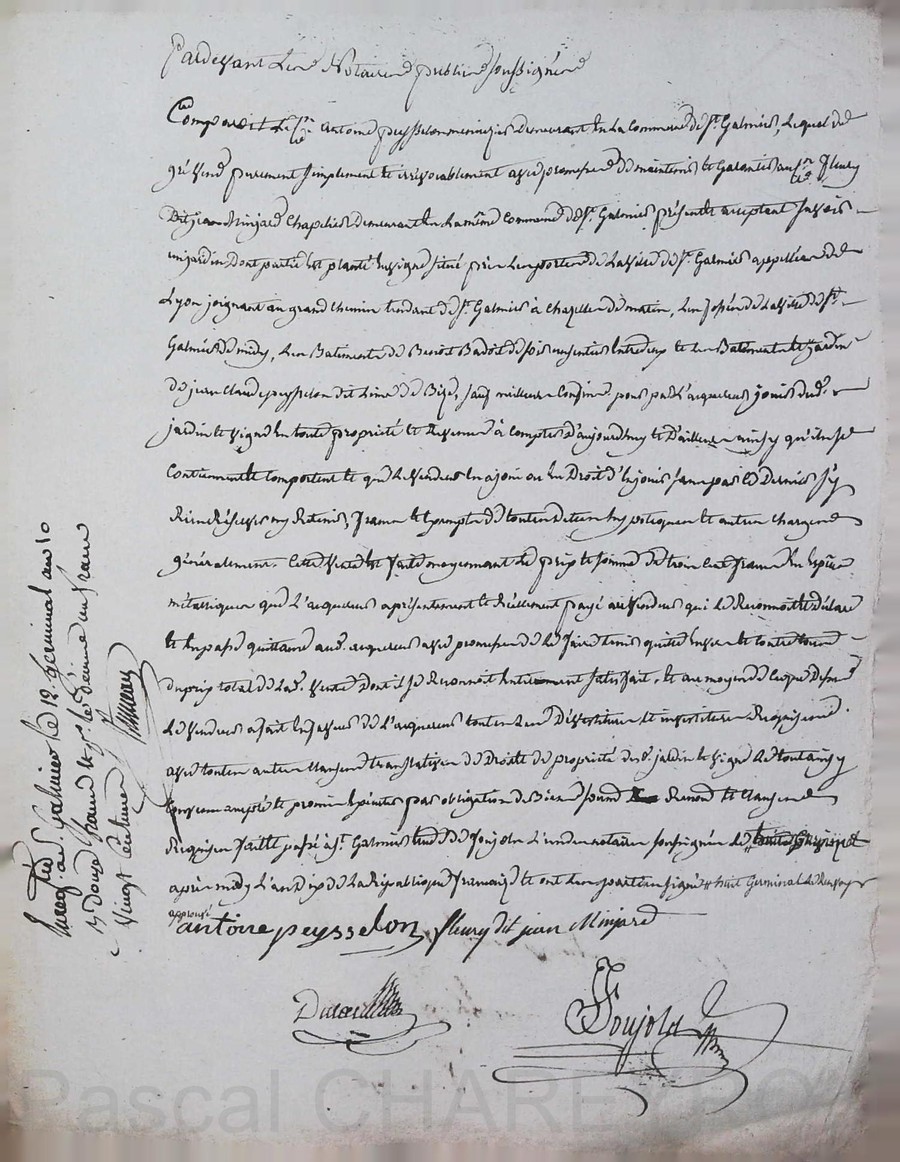 Pardevant les Notaires publics soussignés
Comparait le cen antoine peysselon menuizier demeurant en la commune de St. Galmier, lequel de
gré vend purement simplement et irrévocablement avec promesse de maintenir et garantir au cen fleury
Dit jean Minjard Chapelier demeurant en la même commune de St. Galmier présent et acceptant savoir
un jardin dont partie est planté en vigne situé près les portes de la ville de St. Galmier appellées de
Lyon joignant au grand chemin tendant de St. Galmier à Chazelles de matin, les fossés de la ville de St.
Galmier de midy, les Batiments de Benoit Badoil de soir un sentier entredeux et les Batiment et jardin
de jean Claude peysselon dit de Bize, sauf meilleurs confins, pour par l'acquereur jouir dud.
jardin et vigne en toute propriété et à compter d'aujourd'huy et d'ailleurs ainsy qu'ils se
contiennent et comportent et que le vendeur en a joui ou eu Droit d'en jouir sans par ce Dernier s'y
Rien Réserver ny Retenir, francs et exempts de toutes dettes hypoteques et autres charges
généralement. Cette vente est faite moyennant le prix et somme de trois cent francs en espèces
métalliques que l'acquereur a présentement et Réellement payé au vendeur qui le Reconnoit et déclare
et en passe quittance aud. acquereur avec promesse de le faire tenir quitte envers et contre tous
du prix total de lad. vente dont il se Reconnoit entierement satisfait, et au moyen de ce que dessus
le vendeur a fait en faveur de l'acquereur toutes les Dévestitures et investitures Requises
avec toutes autres clauses translatives de Droits de propriété desd. jardin et vigne le tout ainsy
convenu accepté et promis exécuter par obligation de Biens Renond et clauses
Requises fait et passé à St. Galmier étude de Soujols l'un des notaires soussignés le
après midy l'an dix de la République française et ont les parties signé huit Germinal
approuvé
antoine peysselon fleury dit jean Minjard
Soujols
Enregistré à St. Galmier le 12 germinal an 10
Reçu Douze francs et pr. le décime un franc
Vingt centimes